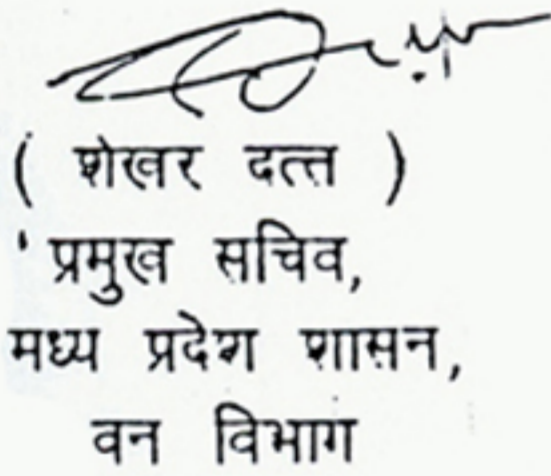 ( शेखर दत्त )
प्रमुख सचिव,
मध्य प्रदेश शासन,
वन विभाग